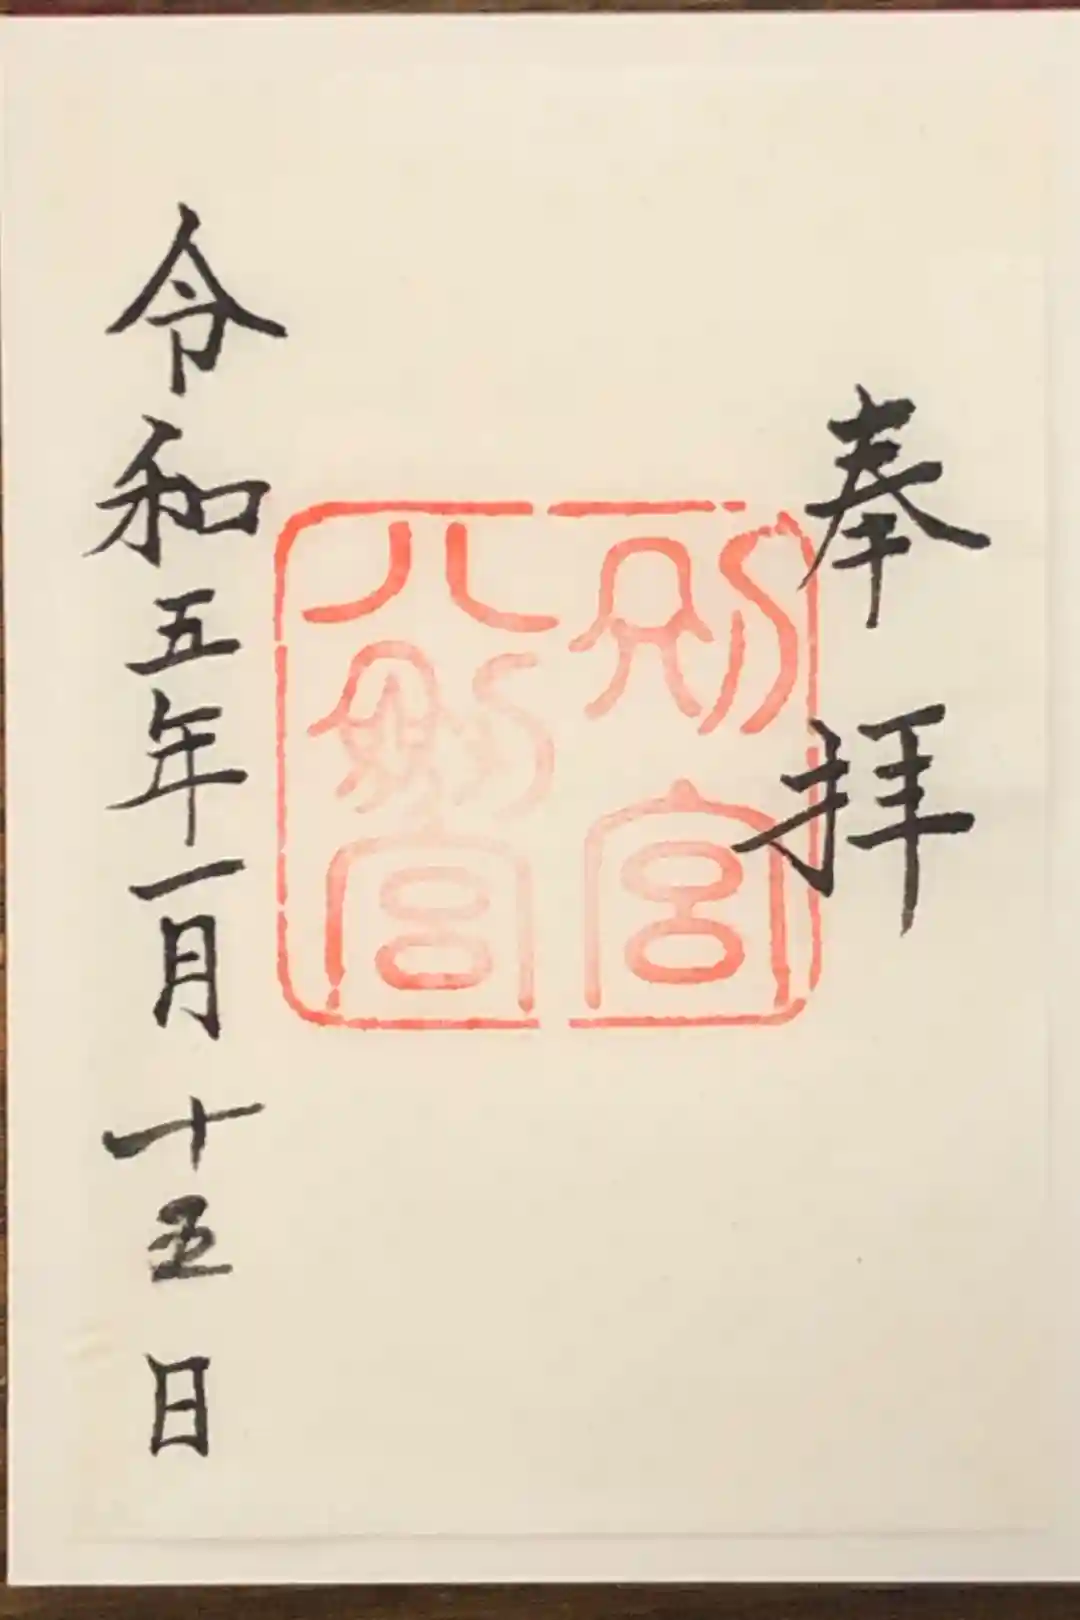 奉拝
別宮
八劍宮
令和五年一月十五日